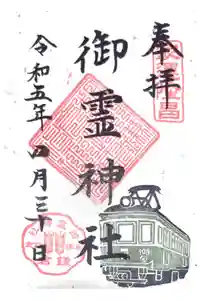 奉拝
御霊神社
令和五年四月三十日